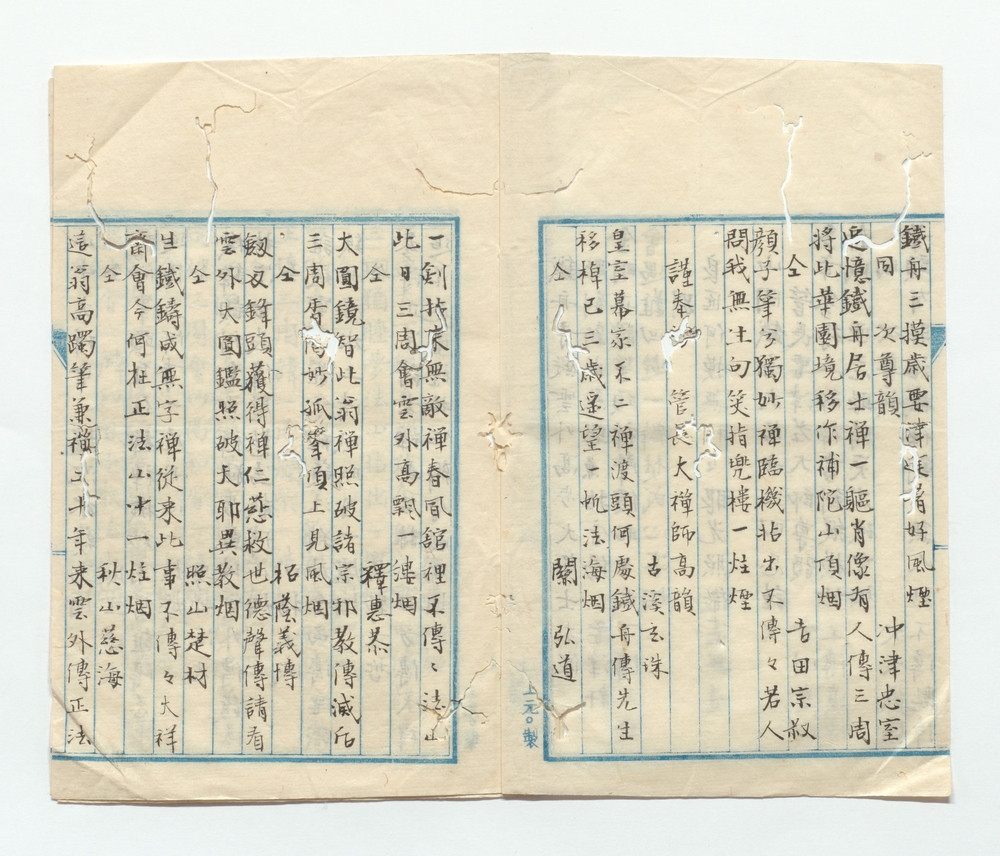 鐵舟三摸歳要津 好風煙
同 次尊韻 沖津忠室
追憶鐵舟居士禅一軀肖像有人傳三周
将此華園境移作補陀山頂烟
仝 吉田宗叔
顔子筆兮獨妙禅臨機拈出不傳々若人
問我無生句笑指兜楼一炷煙
謹奉 管長大禅師高韻
古溪玄洙
皇室幕家不二禅渡頭何處鐵舟傳先生
移棹已三歳遥望一帆法海烟
仝 關 弘道
一劍 床無敵禅春風舘裡不傳々法山
此日三周會雲外高飄一縷烟
仝 釋惠恭
大圓鏡智此翁禅照破諸宗邪教傳滅后
三周 妙孤峯頂上見風烟
仝 柘蔭義博
劔刃鋒頭獲得禅仁慈救世德聲傳請看
雲外大圓鑑照破天耶異教烟
仝 照山楚材
生鐵鑄成無字禅従来此事不傳々大祥
齋會今何在正法山中一炷烟
仝 秋山慈海
這翁高躅筆兼禅 十年来雲外傳正法
上元〇製